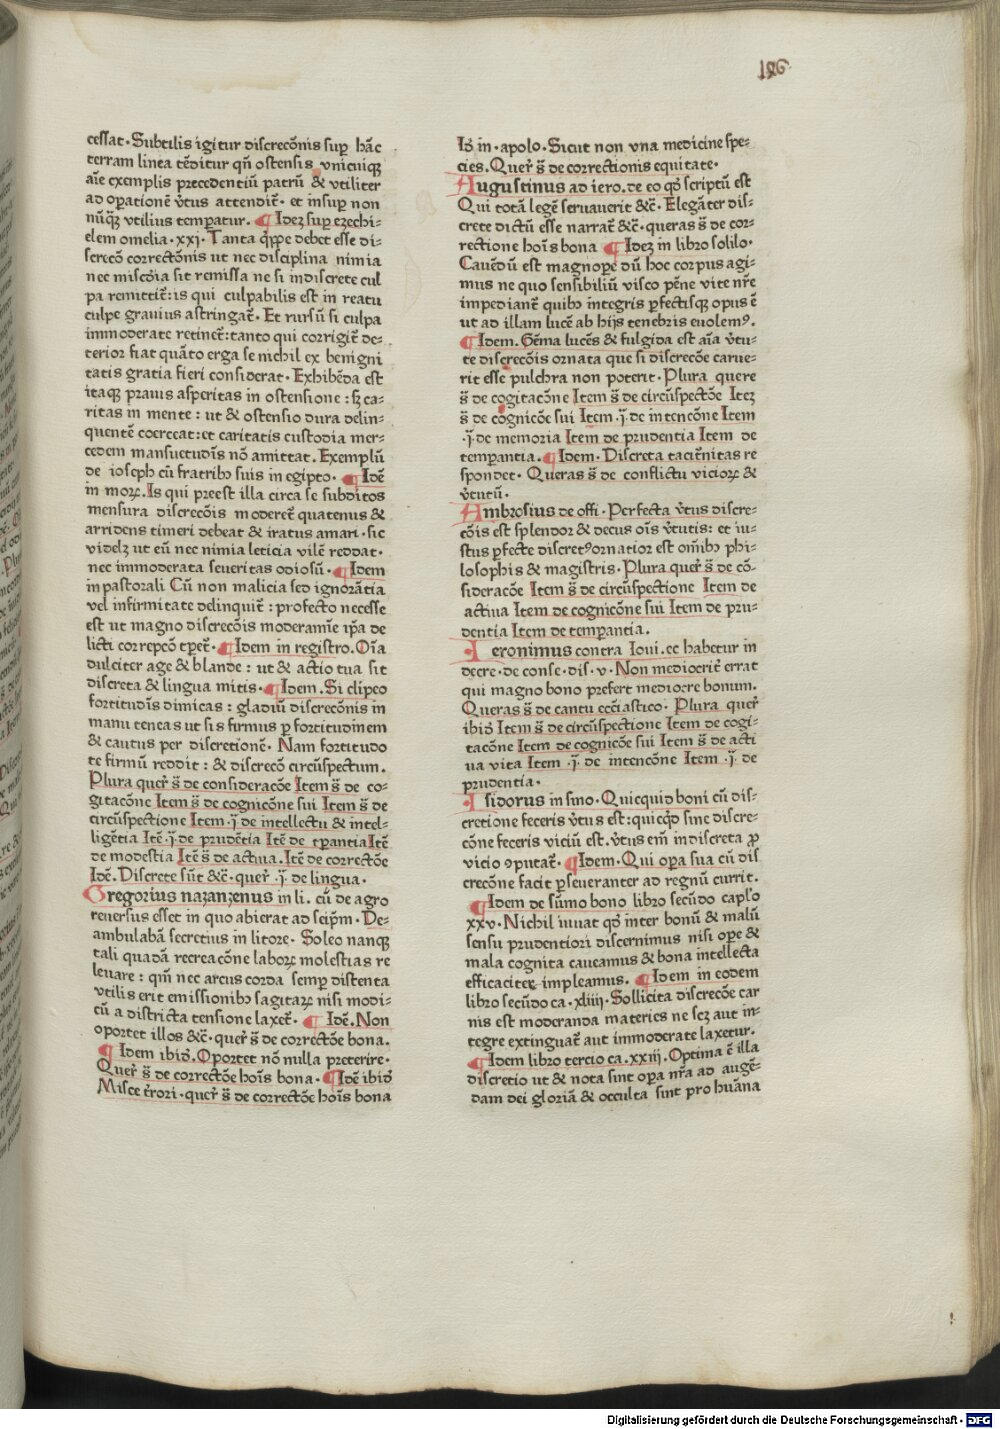 186
cessat. Subtilis igitur discrecōnis sup hāc
terram linea tēditur qn̄ ostensis vnicuiqꝫ
aīe exemplis precedentiū patrū & vtiliter
ad oꝑationē v̄tus attendit᷒. et insup non
nūqꝫ vtilius temꝑatur. ¶ Ideꝫ sup ezechi⸗
elem omelia .xxj. Tanta qͥppe debet esse di⸗
screcō correctōnis ut nec disciplina nimia
nec miscōia sit remissa ne si indiscrete cul
pa remittit᷒: is qui culpabilis est in reatu
culpe grauius astringat᷒. Et rursū si culpa
immoderate retinet᷒: tanto qui corrigit᷒ de⸗
terior fiat quāto erga se nichil ex benigni
tatis gratia fieri considerat. Exhibēda est
itaqꝫ prauis asperitas in ostensione : sꝫ ca⸗
ritas in mente : ut & ostensio dura delin⸗
quentē coerceat: et caritatis custodia mer⸗
cedem mansuetudīs nō amittat. Exemplū
de ioseph cū fratribꝫ suis in egipto. ¶ Idē
in moꝝ. Is qui preest illa circa se subditos
mensura discrecōis moderet᷒ quatenus &
arridens timeri debeat & iratus amari. sic
videlꝫ ut eū nec nimia leticia vilē reddat.
nec immoderata seueritas odiosū. ¶ Idem
in pastorali Cū non malicia sed ignorātia
vel infirmitate delinquit᷒ : profecto necesse
est ut magno discrecōis moderamīe ip̄a de
licti correpcō tꝑet᷒. ¶ Idem in registro. Oīa
dulciter age & blande : ut & actio tua sit
discreta & lingua mitis. ¶ Idem. Si clipeo
fortitudīs dimicas : gladiū discrecōnis in
manu teneas ut sis firmus ꝑ fortitudinem
& cautus per discretionē. Nam fortitudo
te firmū reddit : & discrecō circūspectum.
Plura quer᷒ s̄ de consideracōe Item s̄ de co⸗
gitacōne Item s̄ de cognicōne sui Item s̄ de
circūspectione Item .j̄. de intellectu & intel⸗
ligētia Itē .j̄. de prudētia Itē de tꝑantia Itē
de modestia Itē s̄ de actiua. Itē de correctōe
Idē. Discrete sūt &c̄. quer᷒ .j̄. de lingua.
Gregorius nazanzenus in li. cū de agro
reuersus esset in quo abierat ad seip̄m. De⸗
ambulabā secretius in litore. Soleo nanqꝫ
tali quadā recreacōne laboꝝ molestias re
leuare : qm̄ nec arcus corda semꝑ distenta
vtilis erit emissionibꝫ sagitaꝝ nisi modi⸗
cū a districta tensione laxet᷒. ¶ Idē. Non
oportet illos &c̄. quer᷒ s̄ de correctōe bona.
¶ Idem ibiđ. Oportet nō nulla preterire.
Quer᷒ s̄ de correctōe hoīs bona. ¶ Idē ibiđ
Misce t᷒rori. quer᷒ s̄ de correctōe hoīs bona
Iđ in .apolo. Sicut non vna medicine spe⸗
cies. Quer᷒ s̄ de correctionis equitate.
Augustinus ad iero. de eo qđ scriptū est
Qui totā legē seruauerit &c̄. Elegāter dis⸗
crete dictū esse narrat᷒ &c̄. queras s̄ de cor⸗
rectione hoīs bona ¶ Ideꝫ in libro solilo.
Cauēdū est magnoꝑe dū hoc corpus agi⸗
mus ne quo sensibiliū visco pēne vite nr̄e
impediant᷒ quibꝫ integris ꝑfectisqꝫ opus ē
ut ad illam lucē ab hijs tenebris euolemꝰ.
¶ Idem. Gēma lucēs & fulgida est aīa v̄tu⸗
te discrecōis ornata que si discrecōe carue⸗
rit esse pulchra non poterit. Plura quere
s̄ de cogitacōne Item s̄ de circūspectōe Iteꝫ
s̄ de cognicōe sui Item .j̄. de intencōne Item
.j̄. de memoria Item de prudentia Item de
temꝑantia. ¶ Idem. Discreta taciērnitas re
spondet. Queras s̄ de conflictu vicioꝝ &
v̄tutū.
Ambrosius de offi. Perfecta v̄tus discre⸗
cōis est splendor & decus oīs v̄tutis: et iu⸗
stus ꝑfecte discretꝰ ornatior est om̄ibꝫ phi⸗
losophis & magistris. Plura quer᷒ s̄ de cō⸗
sideracōe Item s̄ de circūspectione Item de
actiua Item de cognicōne sui Item de pru⸗
dentia Item de temꝑantia.
Ieronimus contra Ioui. et habetur in
decre. de conse. dis. v. Non mediocrit᷒ errat
qui magno bono prefert mediocre bonum.
Queras s̄ de cantu eccīastico. Plura quer᷒
ibiđ Item s̄ de circūspectione Item de cogi⸗
tacōne Item de cognicōe sui Item s̄ de acti
ua vita Item .j̄. de intencōne Item .j̄. de
prudentia.
Isidorus in sino. Quicquid boni cū dis⸗
cretione feceris v̄tus est: quicqđ sine discre⸗
cōne feceris viciū est. v̄tus em̄ indiscreta ꝓ
vicio ꝯputat᷒. ¶ Idem. Qui oꝑa sua cū dis
crecōne facit ꝑseueranter ad regnū currit.
¶ Idem de sūmo bono libro secūdo capl'o
xxv. Nichil iuuat qđ inter bonū & malū
sensu prudentiori discernimus nisi oꝑe &
mala cognita caueamus & bona intellecta
efficaciter impleamus. ¶ Idem in eodem
libro secūdo ca. xliiij. Sollicita discrecōe car
nis est moderanda materies ne scꝫ aut in⸗
tegre extinguat᷒ aut immoderate laxetur.
¶ Idem libro tercio ca. xxiij. Optima ē illa
discretio ut & nota sint oꝑa nr̄a ad augē⸗
dam dei gloriā & occulta sint pro hūana
Digitalisierung gefördert durch die Deutsche Forschungsgemeinschaft - DFG